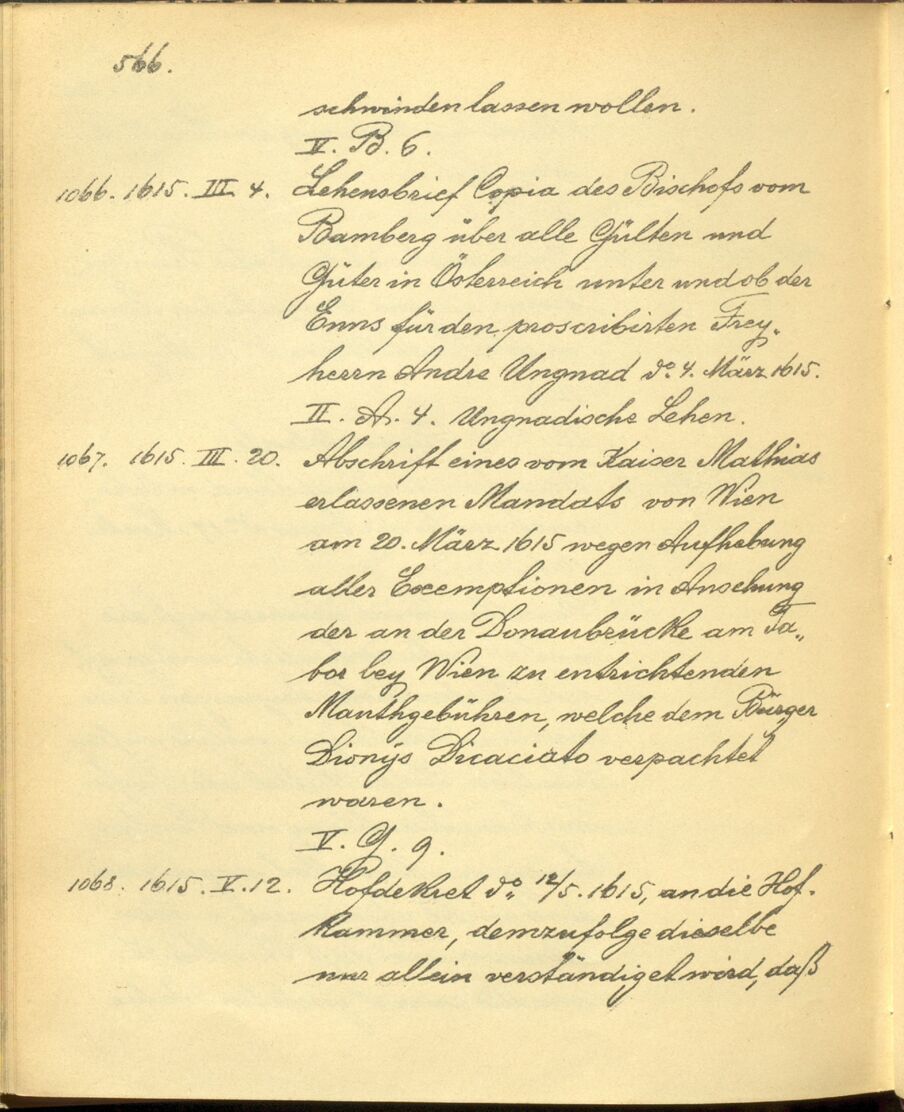 566.
schwinden lassen wollen.
V. B. 6.
1066. 1615. III 4. Lehensbrief Copia des Bischofs vom
Bamberg über alle Gülten und
Güter in Österreich unter und ob der
Enns für den proscribirten Frey„
herrn Andre Ungnad do. 4. März 1615.
II. A. 4. Ungnadische Lehen.
1067. 1615. III. 20. Abschrift eines vom Kaiser Mathias
erlassenen Mandats von Wien
am 20. März 1615 wegen Aufhebung
aller Exemptionen in Ansehung
der an der Donaubrücke am Ta„
bor bey Wien zu entrichtenden
Mauthgebühren, welche dem Bürger
Dionÿs Dicaciato verpachtet
waren.
V. G. 9.
1068. 1615. V. 12. Hofdekret do. 12/5. 1615, an die Hof.
kammer, demzufolge dieselbe
nur allein verständiget wird, daß